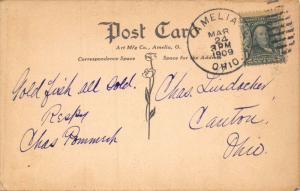 Post Card
Art Mfg Co., Amelia, O.
Correspondence Space
Space for the Address
AMELIA
MAR
24
3 PM
1909
OHIO
Gold fish all sold.
Respy
Chas Pommert
Chas. Lindacker
Canton,
Ohio.